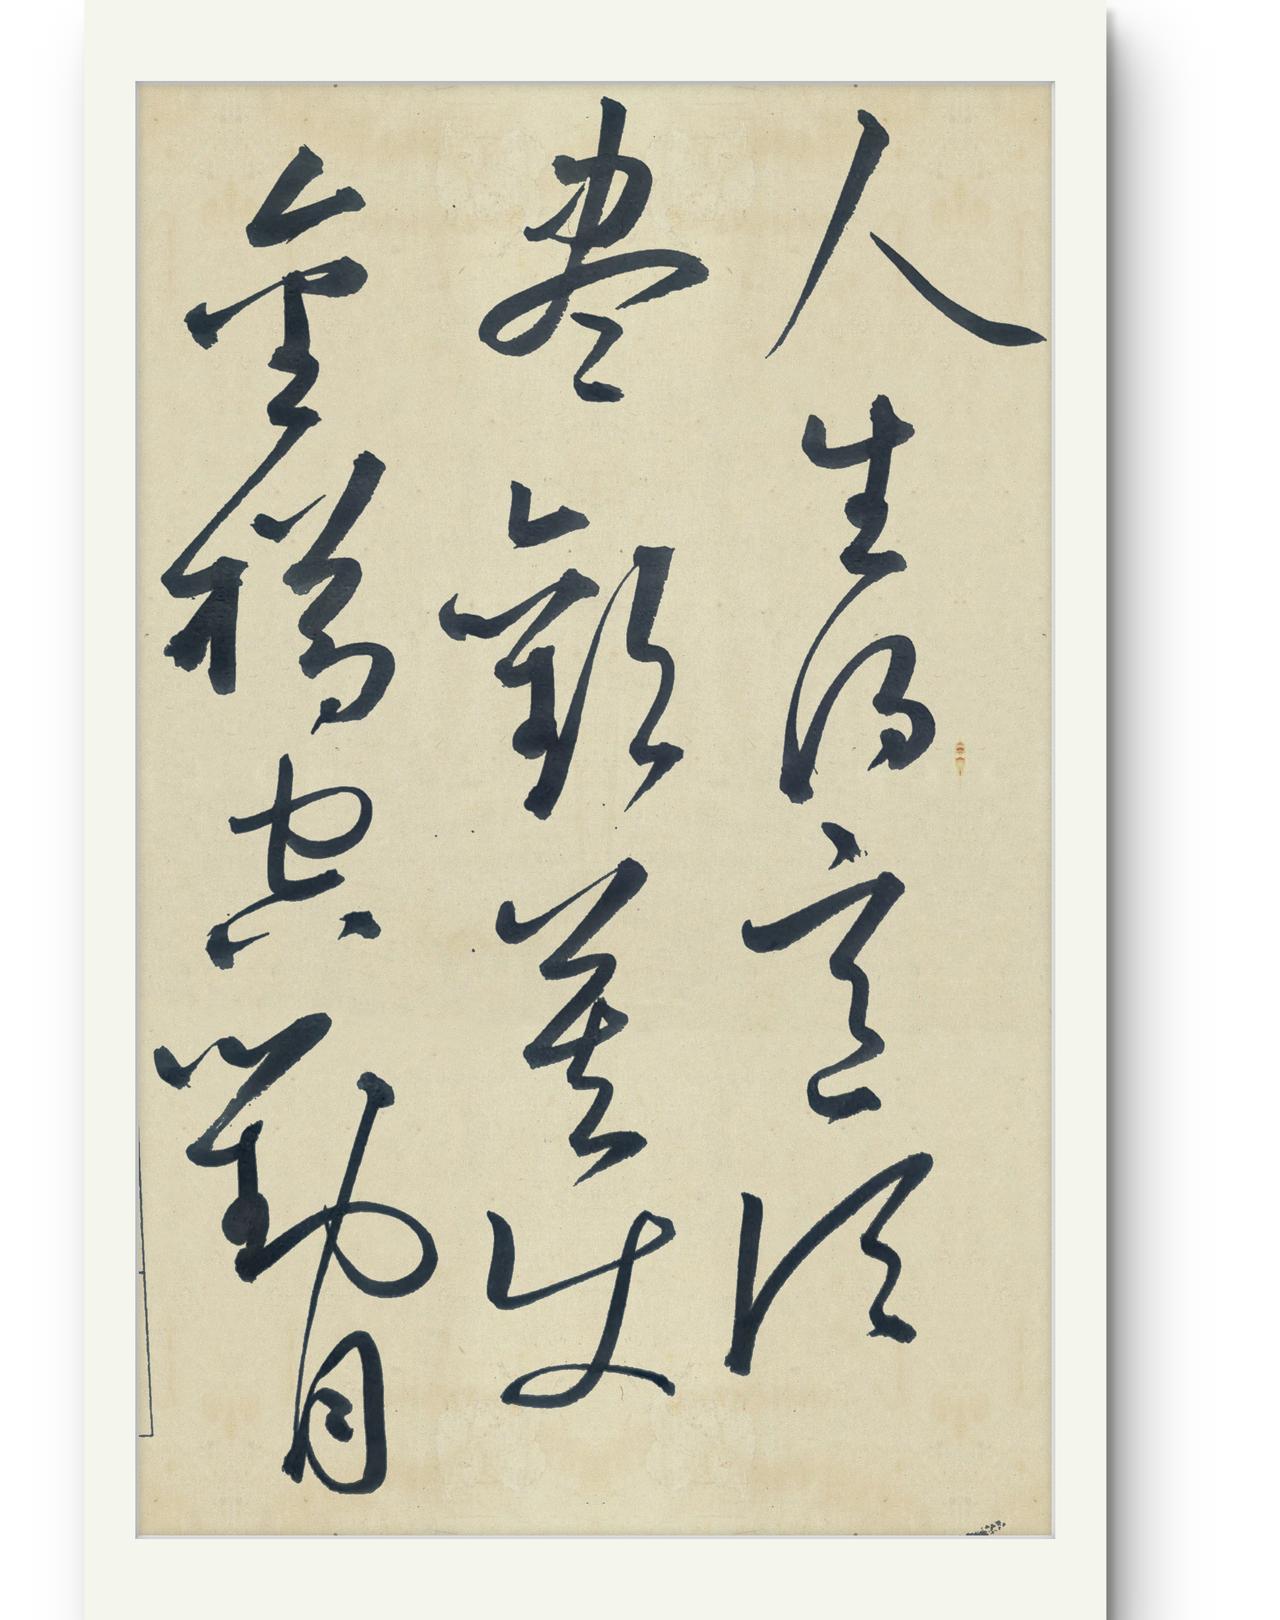 人生得意须
尽歡莫使
金樽空對月